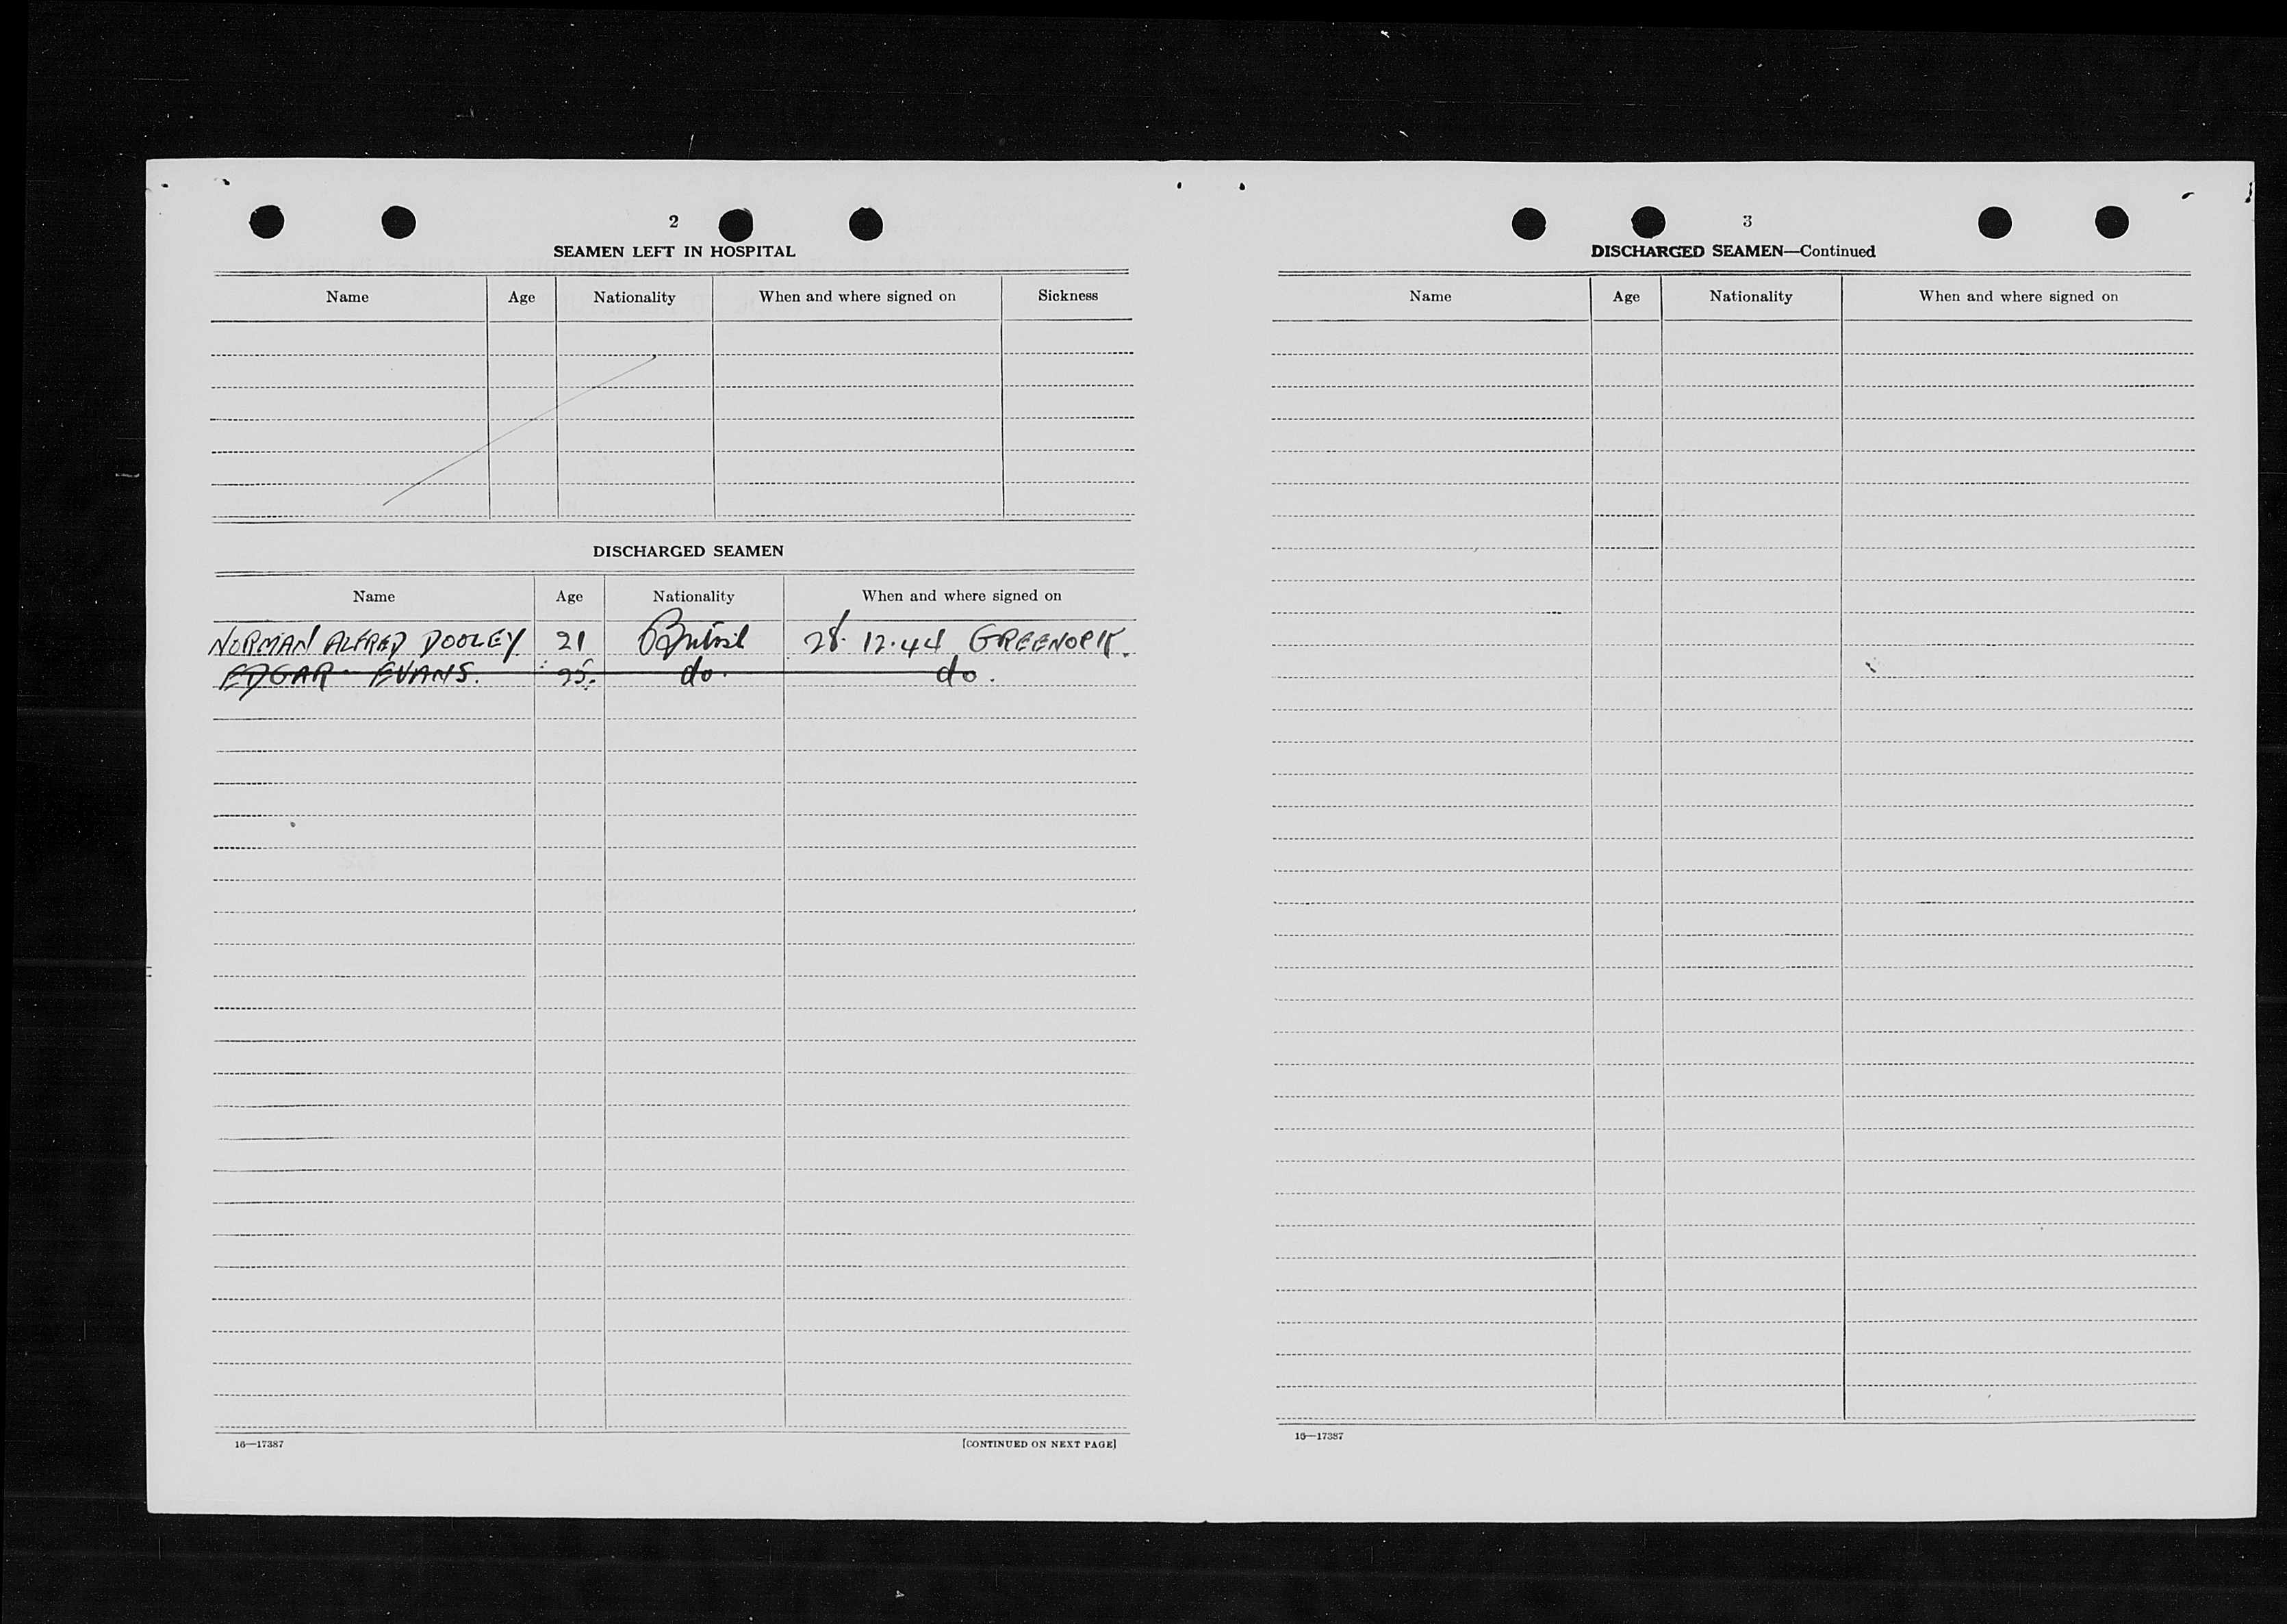 2
SEAMEN LEFT IN HOSPITAL
Name Age Nationality When and where signed on Sickness
DISCHARGED SEAMEN
Name Age Nationality When and where signed on
NORMAN ALFRED DOOLEY. 21 British 28. 12.44 GREENOCK.
EDGAR EVANS. 25. do. do.
16—17387 [CONTINUED ON NEXT PAGE]
3
DISCHARGED SEAMEN—Continued
Name Age Nationality When and where signed on
16—17387